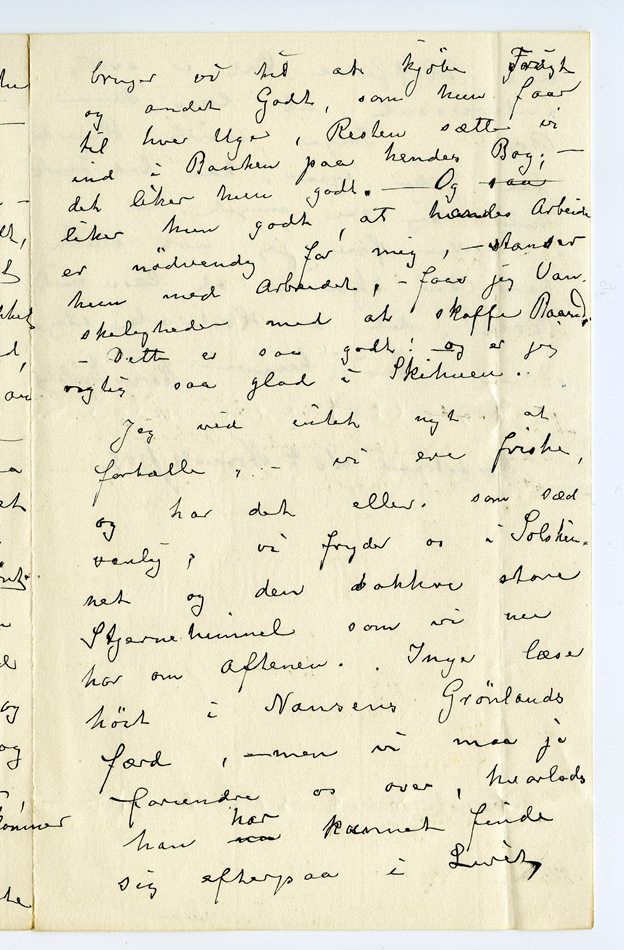 bruger vi til at kjöbe Frugt
og andet Godt, som hun faar
til hver Uge, Resten sætte vi
ind i Banken paa hendes Bog; —
det liker hun godt. — Og saa
liker hun godt, at hendes Arbeide
er nödvendig for mig, — standser
hun med Arbeidet, — faar jeg Van-
skeligheder med at skaffe Baand.
— Dette er saa godt! og er jeg
rigtig saa glad i Skihuen..
Jeg ved intet nyt at
fortælle, — vi ere friske,
og har det eller. som sæd
vanlig; vi fryder os i Solskin-
net og den vakkre store
Stjernehimmel som vi nu
har om Aftenen.. Inga læser
höit i Nansens Grönlands
færd, — men vi maa jo
forundre os over, hvorlods
han har kunnet finde
sig efterpaa i Livet,